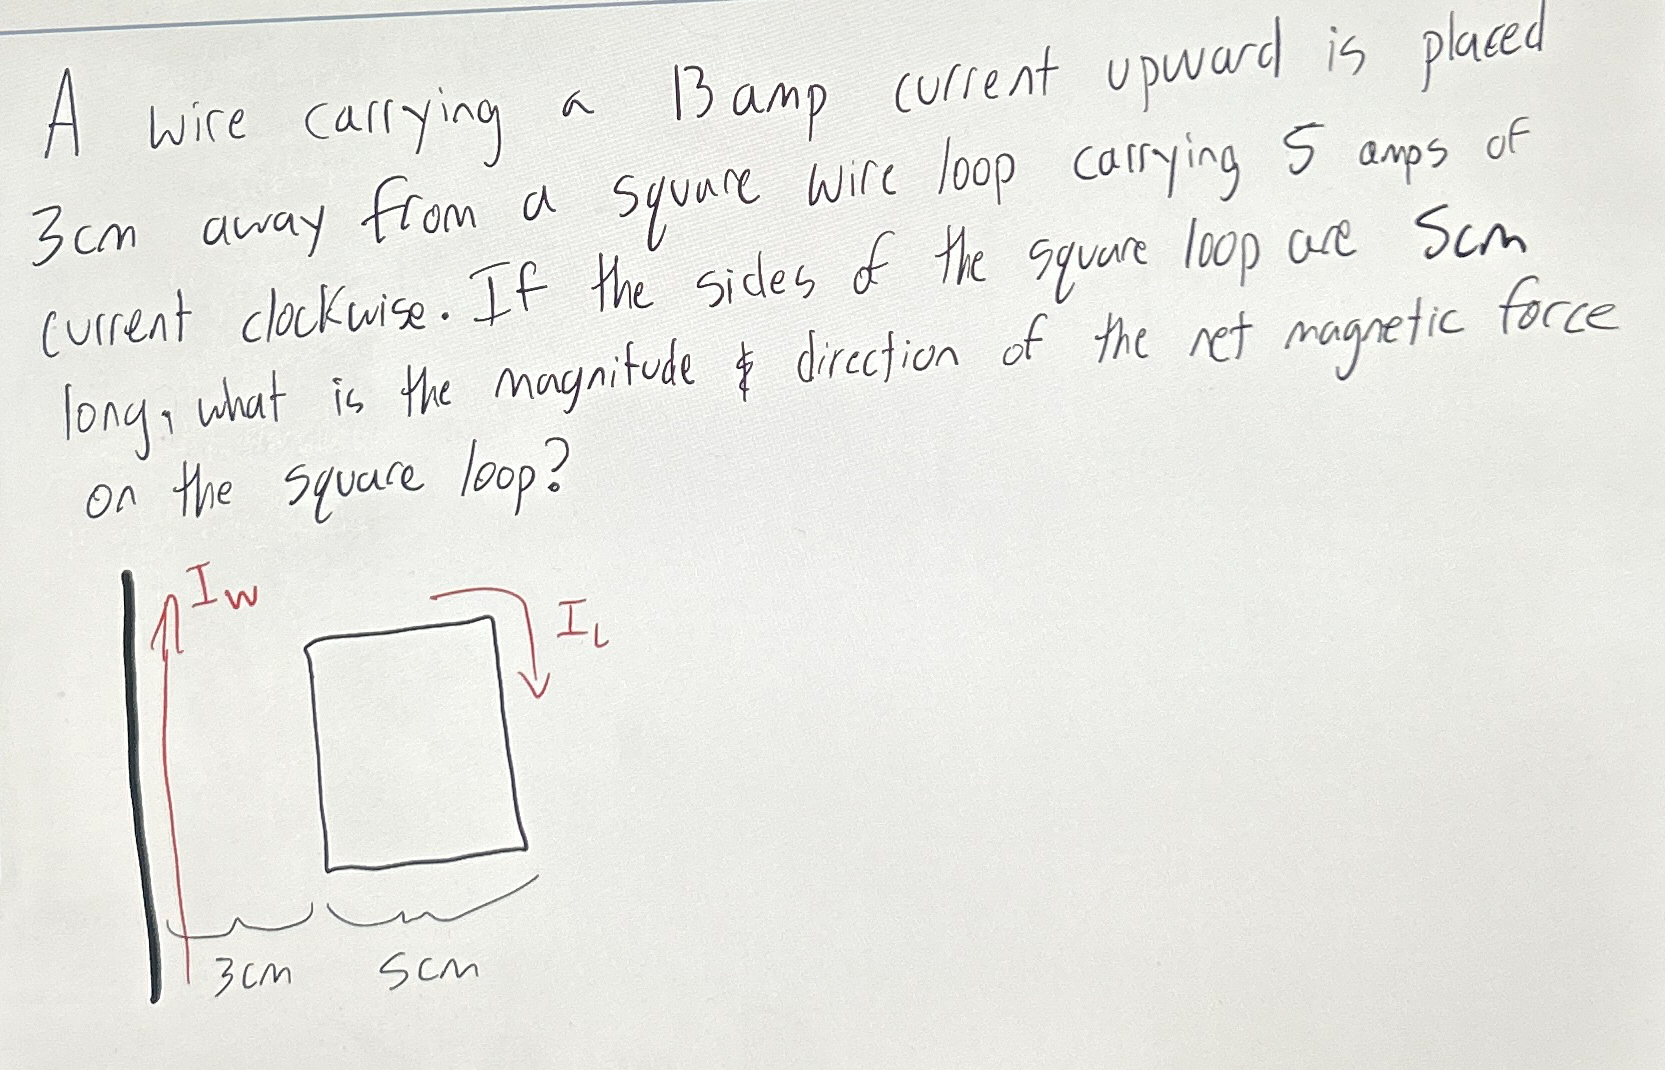 A wire carrying a 13 amp current upward is placed
3cm away from a square wire loop carrying 5 amps of
current clockwise. If the sides of the square loop are 5cm
long, what is the magnitude & direction of the net magnetic force
on the square loop?
I_W
I_L
3cm 5cm